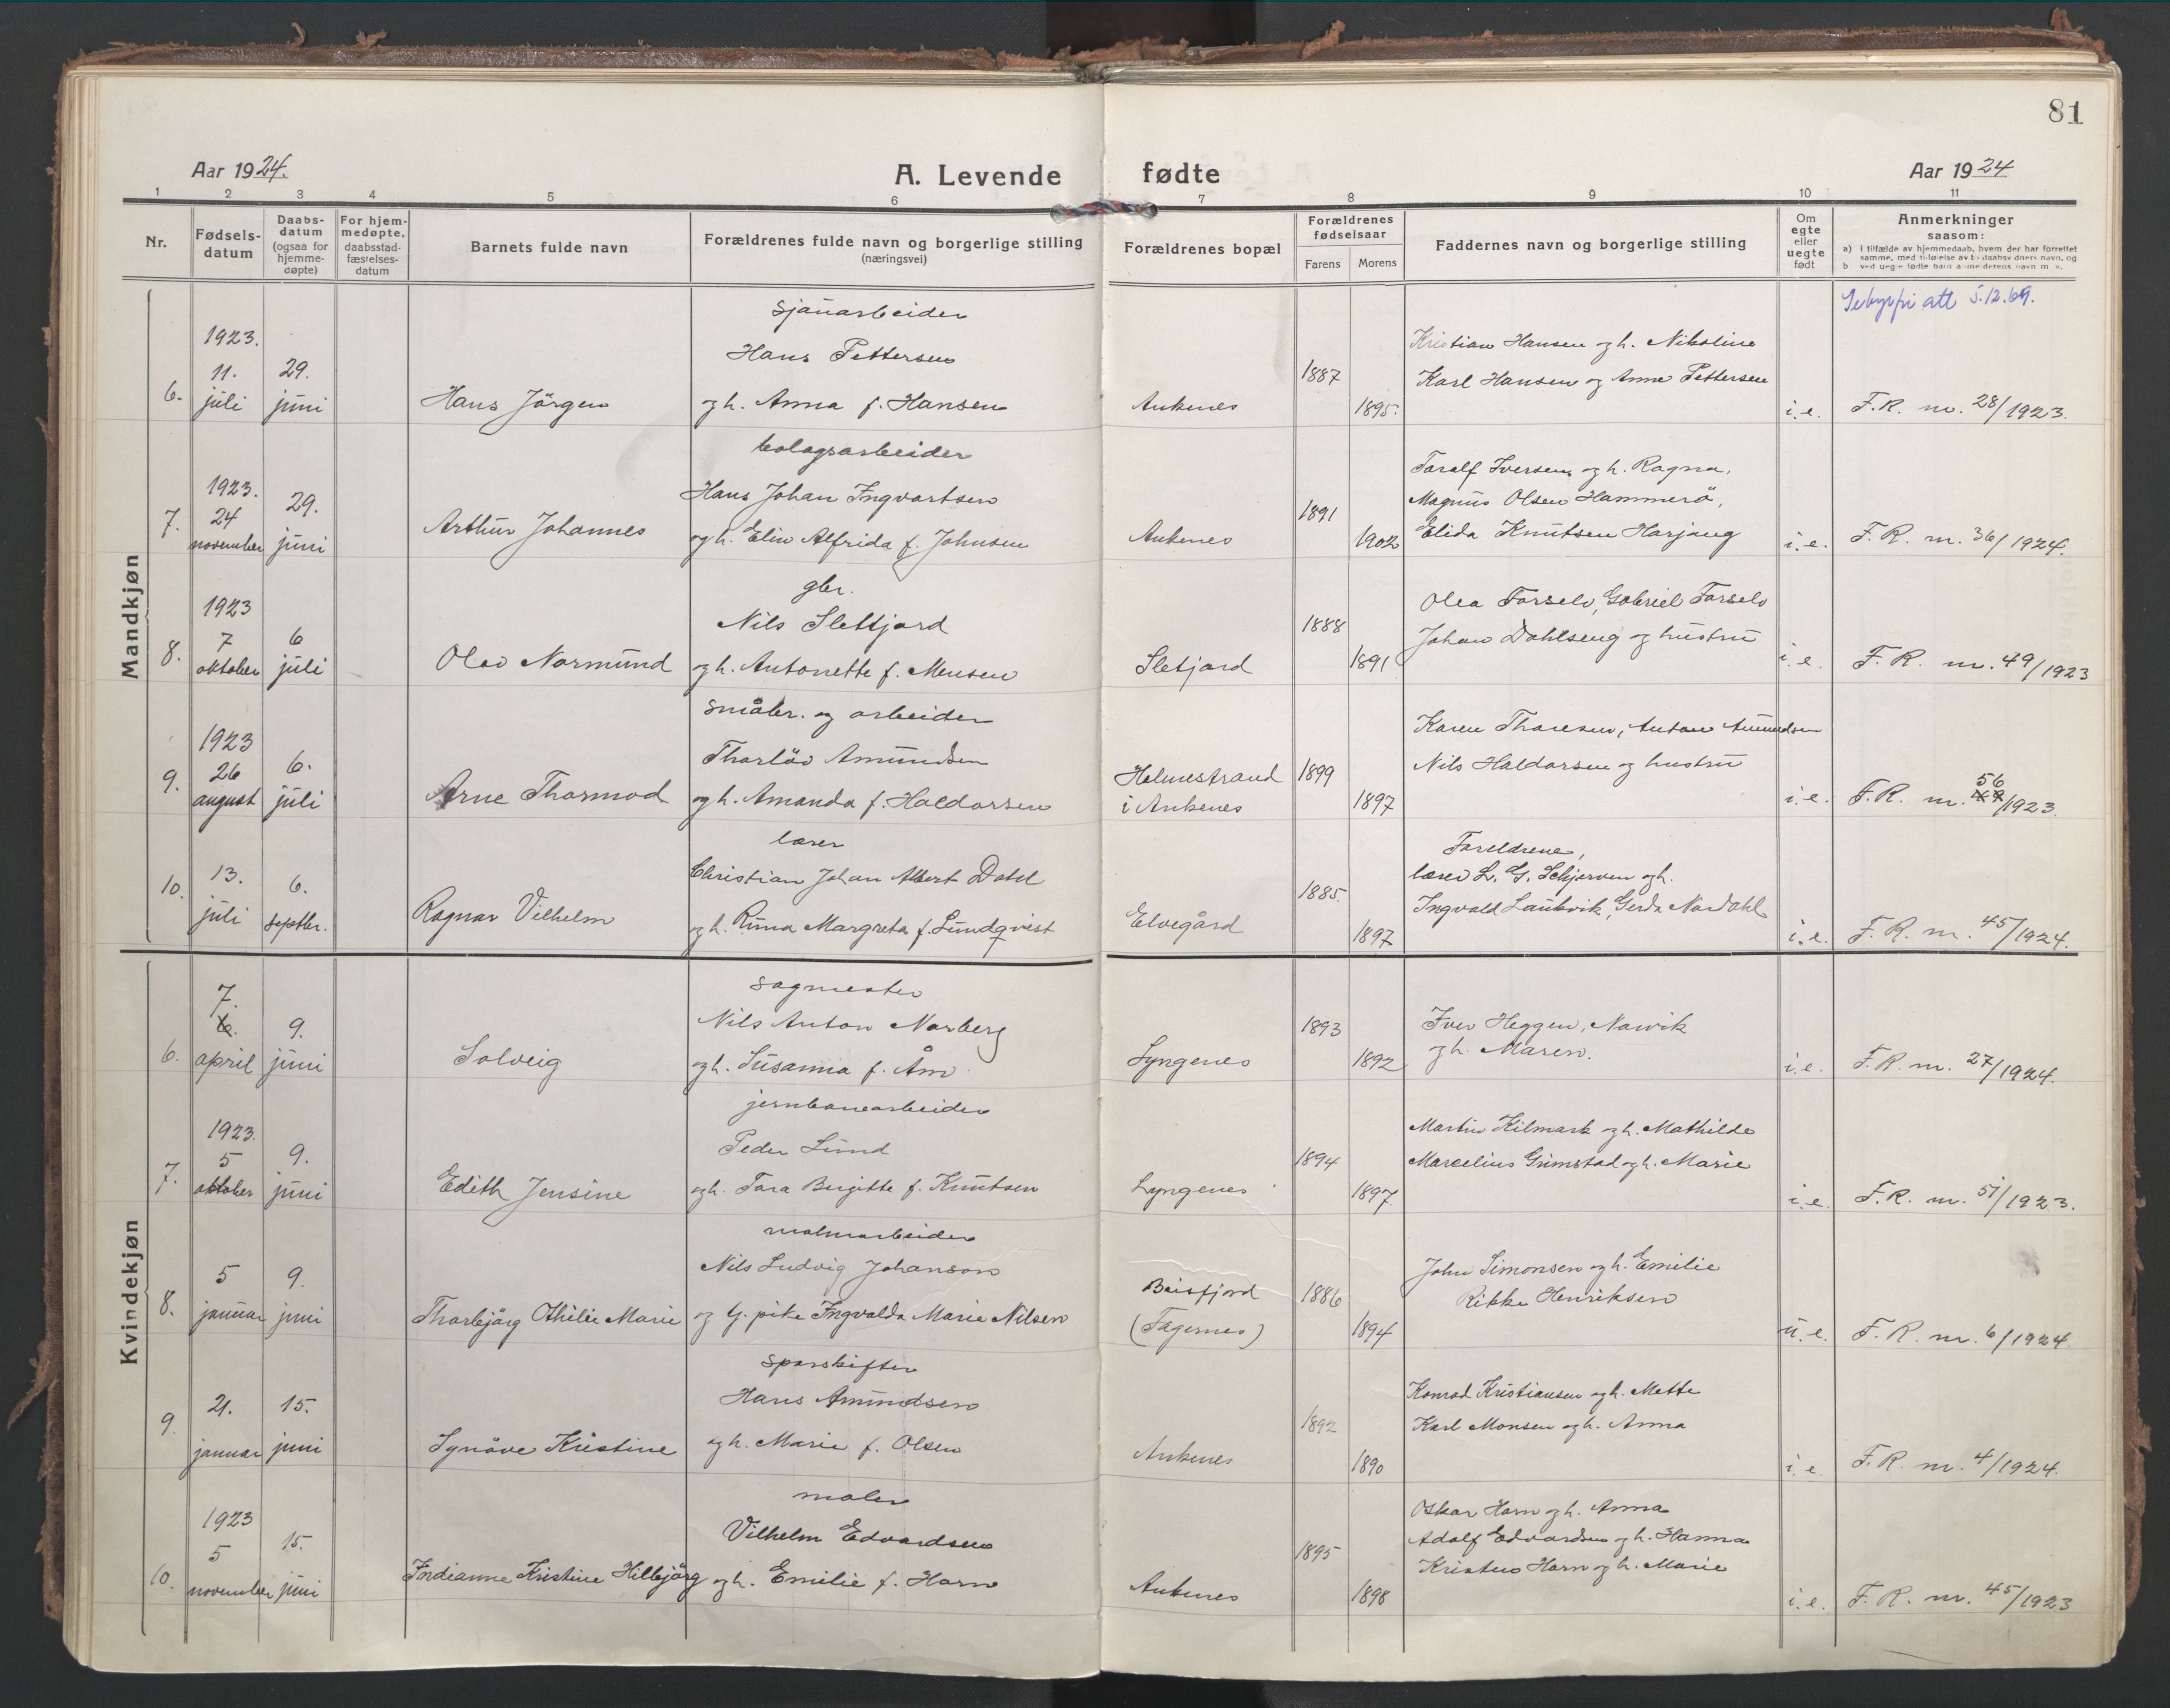 81
Aar 1924.
A. Levende fødte
Aar 1924
1 2 3 4 5 6 7 8 9 10 11
Nr.
Fødsels-
datum
Daabs-
datum
(ogsaa for
hjemme-
døpte)
For hjem-
medøpte,
daabsstad-
fæstelses-
datum
Barnets fulde navn
Forældrenes fulde navn og borgerlige stilling
(næringsvei)
Forældrenes bopæl
Forældrenes
fødselsaar
Farens Morens
Faddernes navn og borgerlige stilling
Om
egte
eller
uegte
født
Anmerkninger
saasom:
a) i tilfælde av hjemmedaab, hvem der har forrettet
samme, med tilføielse av to daabsvidners navn, og
b) ved uegte fødte barn anmelderens navn m. v.
Mandkjøn
6.
1923.
11.
juli
29.
juni
Hans Jörgen
sjauarbeider
Hans Pettersen
og h. Anna f. Hansen
Ankenes
1887
1895.
Kristian Hansen og h. Nikoline
Karl Hansen og Anne Pettersen
i.e.
att 5.12.69.
F.R. nr. 28/1923.
7.
1923.
24
november
29.
juni
Arthur Johannes
bolagsarbeider
Hans Johan Ingvartsen
og h. Elin Alfrida f. Johnsen
Ankenes
1891
1902
Toralf Iversen og h. Ragna,
Magnus Olsen Hammerö,
Elida Knutsen Harjang
i.e.
F.R. nr. 36/1924.
8.
1923
7
oktober
6
juli
Olav Normund
gbr.
Nils Sletfjord
og h. Antonette f. Mensen
Sletjord
1888
1891
Olea Forselv, Gabriel Forselv
Johan Dahlseng og hustru
i.e.
F.R. nr. 49/1923
9.
1923
26
august
6.
juli
Arne Thormod
småbr. og arbeider
Thorlöv Amundsen
og h. Amanda f. Haldorsen
Holmestrand
i Ankenes
1899
1897
Karen Thoresen, Anton Amundsen
Nils Haldorsen og hustru
i.e.
56
F.R. nr. 49/1923.
10.
13.
juli
6.
septbr.
Ragnar Vilhelm
lærer
Christian Johan Albert Dahl
og h. Runa Margreta f. Lundqvist
Elvegård
1885.
1897
Foreldrene,
lærer L. G. Schjerven og h.
Ingvald Laukvik, Gerda Nordahl
i.e.
F.R. nr. 45/1924.
Kvindekjøn
6.
7.
6.
april
9.
juni
Solveig
sagmester
Nils Anton Norberg
og h. Susanna f. Åm
Lyngenes
1893
1892
Iver Heggen, Narvik
og h. Maren.
i.e.
F.R. nr. 27/1924.
7.
1923.
5
oktober
9.
juni
Edith Jensine
jernbanearbeider
Peder Lund
og h. Tora Bergitte f. Knutsen
Lyngenes
1894
1897.
Martin Kilmark og h. Mathilde
Marcelius Grimstad og h. Marie
i.e.
F.R. nr. 51/1923.
8.
5
januar
9.
juni
Thorbjörg Othilie Marie
malmarbeider
Nils Ludvig Johanson
og g. pike Ingvalda Marie Nilsen
Beisfjord
(Fagernes)
1886
1894
John Simonsen og h. Emilie
Rikke Henriksen
u.e.
F.R. nr. 6/1924.
9.
21.
januar
15.
juni
Synöve Kristine
sporskifter
Hans Amundsen
og h. Marie f. Olsen
Ankenes
1892
1890
Konrad Kristiansen og h. Mette
Karl Monsen og h. Anna
i.e.
F.R. nr. 4/1924.
10.
1923
5
november
15.
juni
Indianne Kristine Hillbjörg
maler
Vilhelm Edvardsen
og h. Emilie f. Horn
Ankenes
1895
1898
Oskar Horn og h. Anna
Adolf Edvardsen og h. Hanna
Kristen Horn og h. Marie
i.e.
F.R. nr. 45/1923